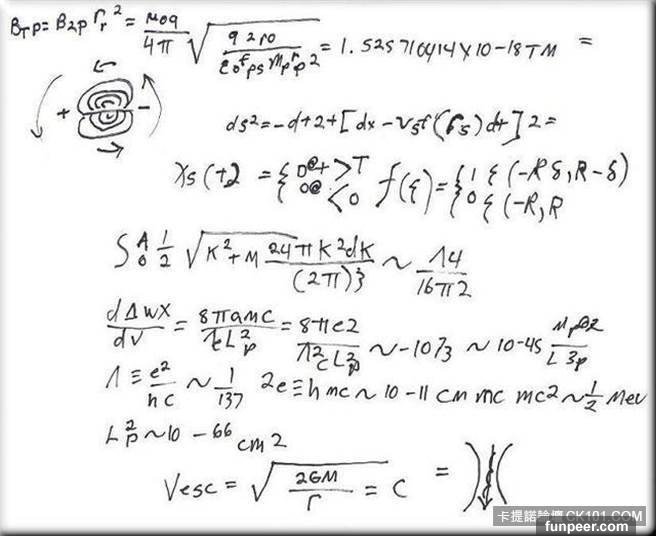 BTP = B2p rr² = μ0q/4π √(q2r0/ε0fpsMprp2) = 1.525710414 x 10-18TM =
+ -
ds² = -d+2+[dx - vsf(rs)dt]2 =
Xs(+2 = { D@+ >T 0@ <0 f(ξ) = { 1 ξ(-R δ, R-δ) 0 ξ(-R, R
S A 0 1/2 √K²+M 24πK²dK/(2π)3 ~ Λ4/16π2
dΔwx/dv = 8πamc/ƛeL²p = 8πe2/Λ²cL²p ~ -1073 ~ 10-45 MpΘ2/L3p
Λ ≡ e²/hc ~ 1/137 2e ≡ hmc ~ 10-11 cm mc mc2 ~ 1/2 Mev
L²p ~ 10 - 66 cm2
Vesc = √2GM/r = C =
卡提諾論壇 CK101.COM
funpeer.com